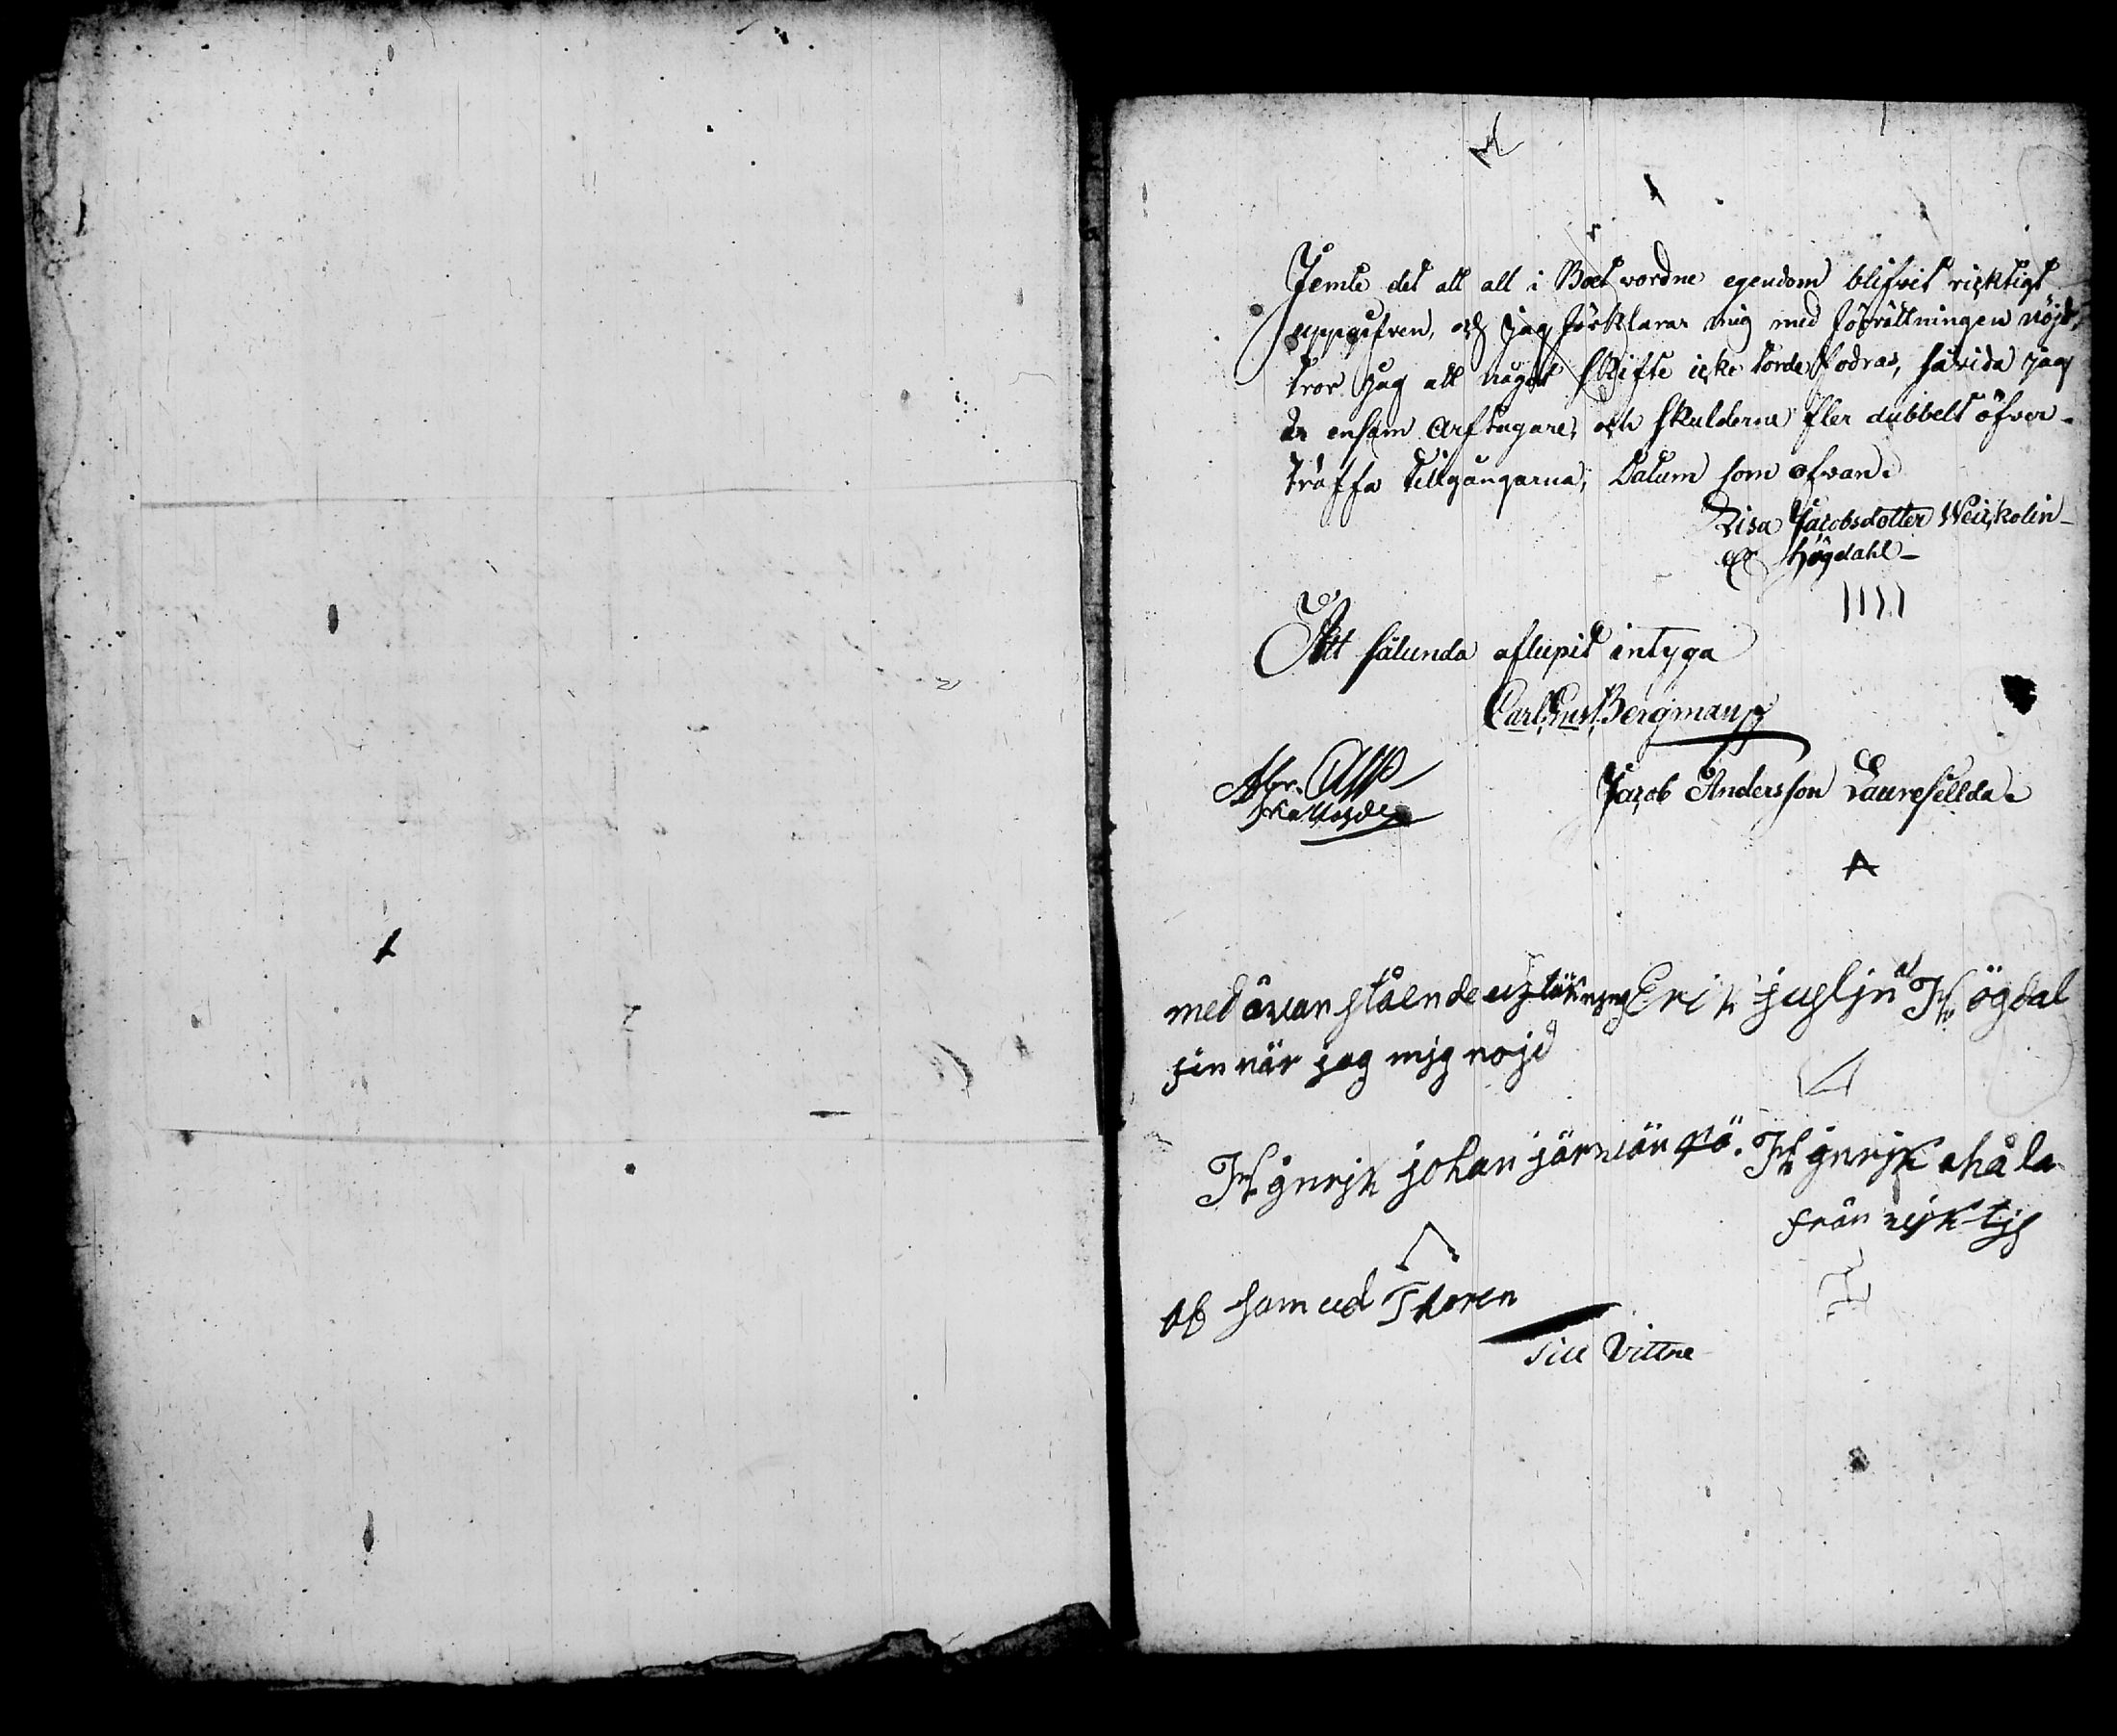 Jemte det all all i Boet vordne egendom blifvit ricktigt
uppgifven, och jag förklarar mig med förrättningen nöjd,
tror jag att något skifte icke torde fodras, såvida jag
är ensam Arftagare, och skulderna fler dubbelt öfver-
träffa tillgångarna; Datum som ofvan.
Lisa Jacobsdotter
Högdahl
Att sålunda aflupit intyga
Carl Gus. Bergman
Abr. Alf
Jacob Andersson
med åvan stående Erik juslin Högdal
fin när jag mig nojd
Hinrik johan Hinrik
från
of Samuel Thoren
Till Vittne